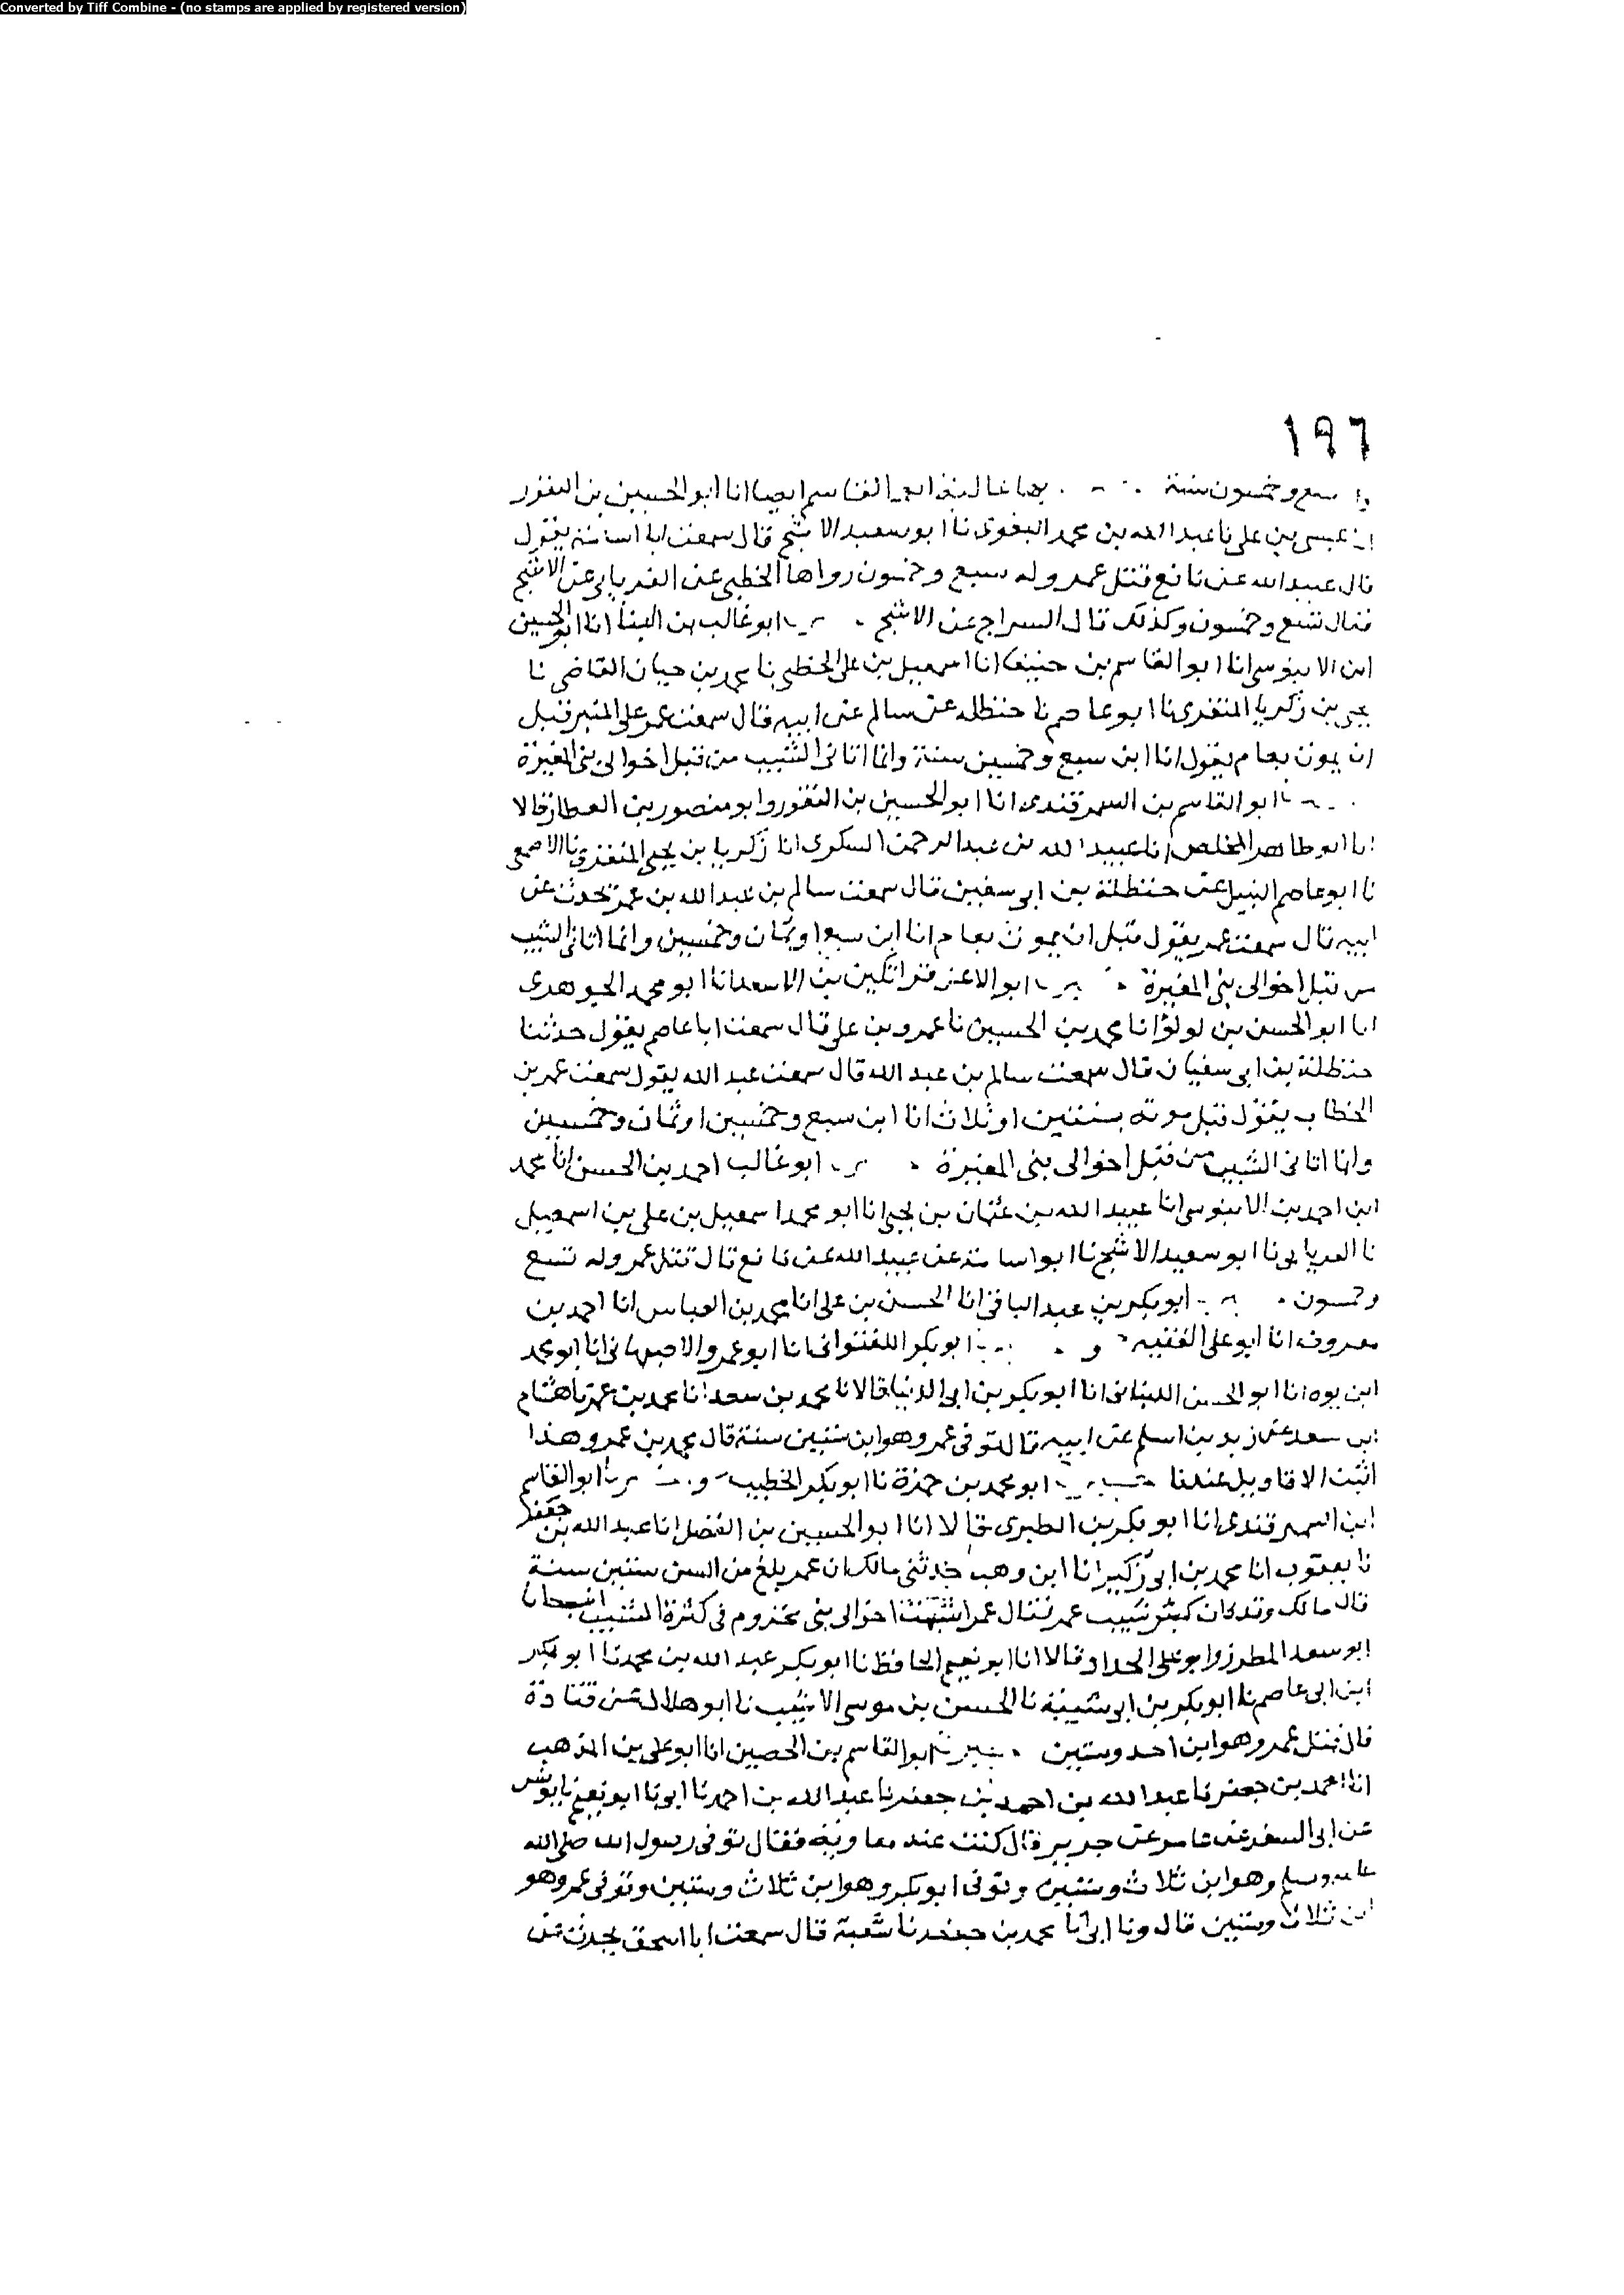 Converted by Tiff Combine - (no stamps are applied by registered version)
١٩٦
سبع وخمسون سنة انا ابو الحسين بن النقور
عيسى بن علي نا عبد الله بن محمد البغوي نا ابو سعيد الاشج قال سمعت ابا اسامة يقول
قال عبيد الله عن نافع قتل عمر وله سبع وخمسون رواها الخطبي عن الفريابي عن الاشج
فقال تسع وخمسون وكذلك قال السراج عن الاشج . ابو غالب بن البنا انا ابو الحسين
ابن الابنوسي انا ابو القاسم بن حنيفا انا اسمعيل بن علي الخطبي نا محمد بن حيان القاضي نا
يحيى بن زكريا المنقري نا ابو عاصم نا حنظلة عن سالم عن ابيه قال سمعت عمر على المنبر قبل
ان يموت بعام يقول انا ابن سبع وخمسين سنة وانما اتاني الشيب من قبل اخوالي بني المغيرة
ابو القاسم بن السمرقندي انا ابو الحسين بن النقور وابو منصور بن العطار قالا
انا ابو طاهر المخلص انا عبيد الله بن عبد الرحمن السكري انا زكريا بن يحيى المنقري نا الاصمعي
نا ابو عاصم النبيل عن حنظلة بن ابي سفين قال سمعت سالم بن عبد الله بن عمر يحدث عن
ابيه قال سمعت عمر يقول قبل ان يموت بعام انا ابن سبع او ثمان وخمسين وانما اتاني الشيب
من قبل اخوالي بني المغيرة . ابو الاعز قراتكين بن الاسعد انا ابو محمد الجوهري
انا ابو الحسن بن لولؤ انا محمد بن الحسين نا عمرو بن علي قال سمعت ابا عاصم يقول حدثنا
حنظلة بن ابي سفيان قال سمعت سالم بن عبد الله قال سمعت عبد الله يقول سمعت عمر بن
الخطاب يقول قبل موته بسنتين او ثلاث انا ابن سبع وخمسين او ثمان وخمسين
وانما اتاني الشيب من قبل اخوالي بني المغيرة . ابو غالب احمد بن الحسن انا محمد
ابن احمد بن الابنوسي انا عبيد الله بن عثمان بن يحيى انا ابو محمد اسمعيل بن علي بن اسمعيل
نا الفريابي نا ابو سعيد الاشج نا ابو اسامة عن عبيد الله عن نافع قال قتل عمر وله تسع
وخمسون . ابو بكر بن عبد الباقي انا الحسن بن علي انا محمد بن العباس انا احمد بن
معروف انا ابو علي الفقيه و . ابو بكر اللفتواني انا ابو عمرو الاصبهاني انا ابو محمد
ابن يوه انا ابو الحسن اللنباني انا ابو بكر بن ابي الدنيا قالا نا محمد بن سعد انا محمد بن عمر نا هشام
ابن سعد عن زيد بن اسلم عن ابيه قال توفي عمر وهو ابن ستين سنة قال محمد بن عمر وهذا
اثبت الاقاويل عندنا ابو محمد بن حمزة نا ابو بكر الخطيب و ابو القاسم
ابن السمرقندي انا ابو بكر بن الطبري قالا انا ابو الحسين بن الفضل انا عبد الله بن جعفر
نا يعقوب انا محمد بن ابي زكير انا ابن وهب حدثني مالك ان عمر بلغ من السن ستين سنة
قال مالك وقد كان كثر شيب عمر فقال عمر اشبهت اخوالي بني مخزوم في كثرة الشيب
ابو سعد المطرز وابو علي الحداد قالا انا ابو نعيم الحافظ نا ابو بكر عبد الله بن محمد نا ابو بكر
ابن ابي عاصم نا ابو بكر بن ابي شيبة نا الحسن بن موسى الاشيب نا ابو هلال عن قتادة
قال قتل عمر وهو ابن احد وستين . ابو القاسم بن الحصين انا ابو علي بن المذهب
انا احمد بن جعفر نا عبد الله بن احمد نا ابي نا ابو نعيم نا يونس
عن ابي السفر عن عامر عن جرير قال كنت عند معاوية فقال توفي رسول الله صلى الله
عليه وسلم وهو ابن ثلاث وستين وتوفي ابو بكر وهو ابن ثلاث وستين وتوفي عمر وهو
ابن ثلاث وستين قال ونا ابي نا محمد بن جعفر نا شعبة قال سمعت ابا اسحق يحدث عن